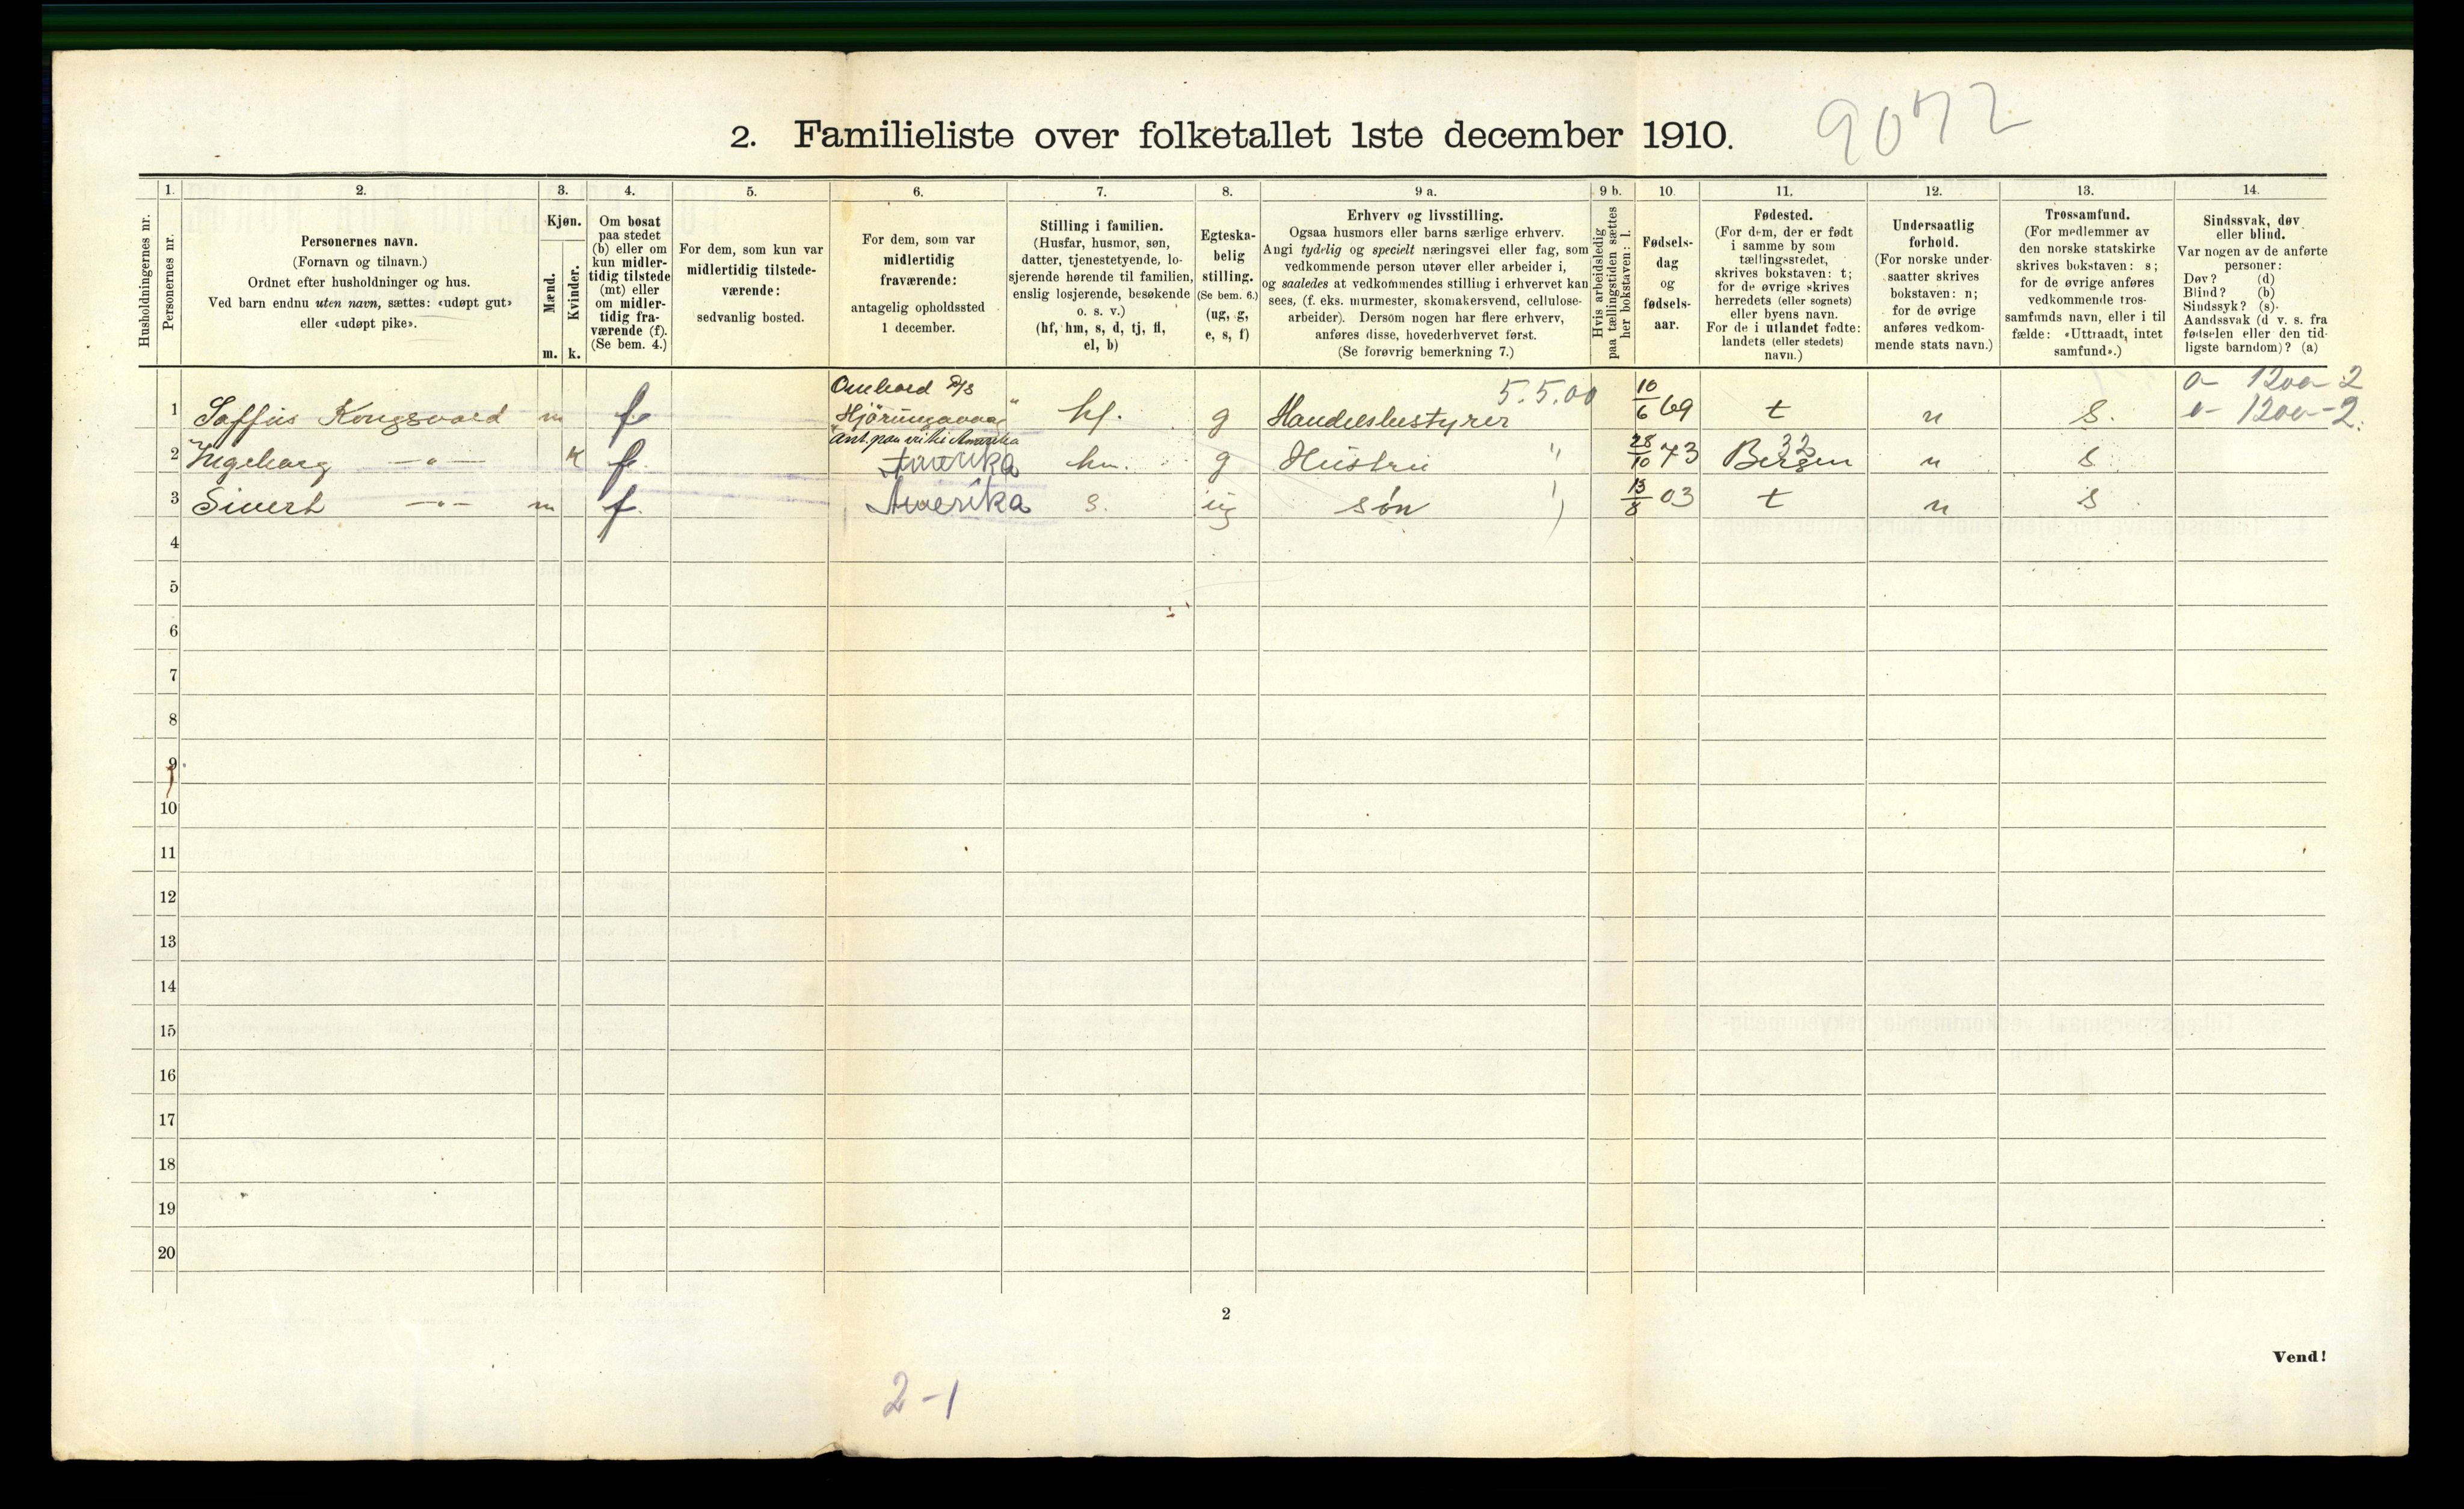 9072
2. Familieliste over folketallet 1ste december 1910.
Husholdningernes nr.
1.
Personernes nr.
2.
Personernes navn.
(Fornavn og tilnavn.)
Ordnet efter husholdninger og hus.
Ved barn endnu uten navn, sættes: «udøpt gut»
eller «udøpt pike».
3.
Kjøn.
Mænd.
Kvinder.
m. k.
4.
Om bosat
paa stedet
(b) eller om
kun midler-
tidig tilstede
(mt) eller
om midler-
tidig fra-
værende (f).
(Se bem. 4.)
5.
For dem, som kun var
midlertidig tilstede-
værende:
sedvanlig bosted.
6.
For dem, som var
midlertidig
fraværende:
antagelig opholdssted
1 december.
7.
Stilling i familien.
(Husfar, husmor, søn,
datter, tjenestetyende, lo-
sjerende hørende til familien,
enslig losjerende, besøkende
o. s. v.)
(hf, hm, s, d, tj, fl,
el, b)
8.
Egteska-
belig
stilling.
(Se bem. 6.)
(ug, g,
e, s, f)
9 a.
Erhverv og livsstilling.
Ogsaa husmors eller barns særlige erhverv.
Angi tydelig og specielt næringsvei eller fag, som
vedkommende person utøver eller arbeider i,
og saaledes at vedkommendes stilling i erhvervet kan
sees, (f. eks. murmester, skomakersvend, cellulose-
arbeider). Dersom nogen har flere erhverv,
anføres disse, hovederhvervet først.
(Se forøvrig bemerkning 7.)
9 b.
Hvis arbeidsledig
paa tællingstiden sættes
her bokstaven: l.
10.
Fødsels-
dag
og
fødsels-
aar.
11.
Fødested.
(For dem, der er født
i samme by som
tællingsstedet,
skrives bokstaven: t;
for de øvrige skrives
herredets (eller sognets)
eller byens navn.
For de i utlandet fødte:
landets (eller stedets)
navn.)
12.
Undersaatlig
forhold.
(For norske under-
saatter skrives
bokstaven: n;
for de øvrige
anføres vedkom-
mende stats navn.)
13.
Trossamfund.
(For medlemmer av
den norske statskirke
skrives bokstaven: s;
for de øvrige anføres
vedkommende tros-
samfunds navn, eller i til-
fælde: «Uttraadt, intet
samfund».)
14.
Sindssvak, døv
eller blind.
Var nogen av de anførte
personer:
Døv? (d)
Blind? (b)
Sindssyk? (s)
Aandssvak (d. v. s. fra
fødselen eller den tid-
ligste barndom)? (a)
Ombord D/S 5.5.00 0 - 1200-2
1 Saffus Kongsvold m f Hjörungavaag hf. g Handelsbestyrer 10/6 69 t n S. 0 - 1200-2.
2 Ingeborg —"— K f Amerika hm. g Hustru " 28/10 73 Bergen n S
3 Sivert —"— m f. Amerika s. ug søn 13/8 03 t n S
4
5
6
7
8
9
10
11
12
13
14
15
16
17
18
19
20
2
Vend!
2-1